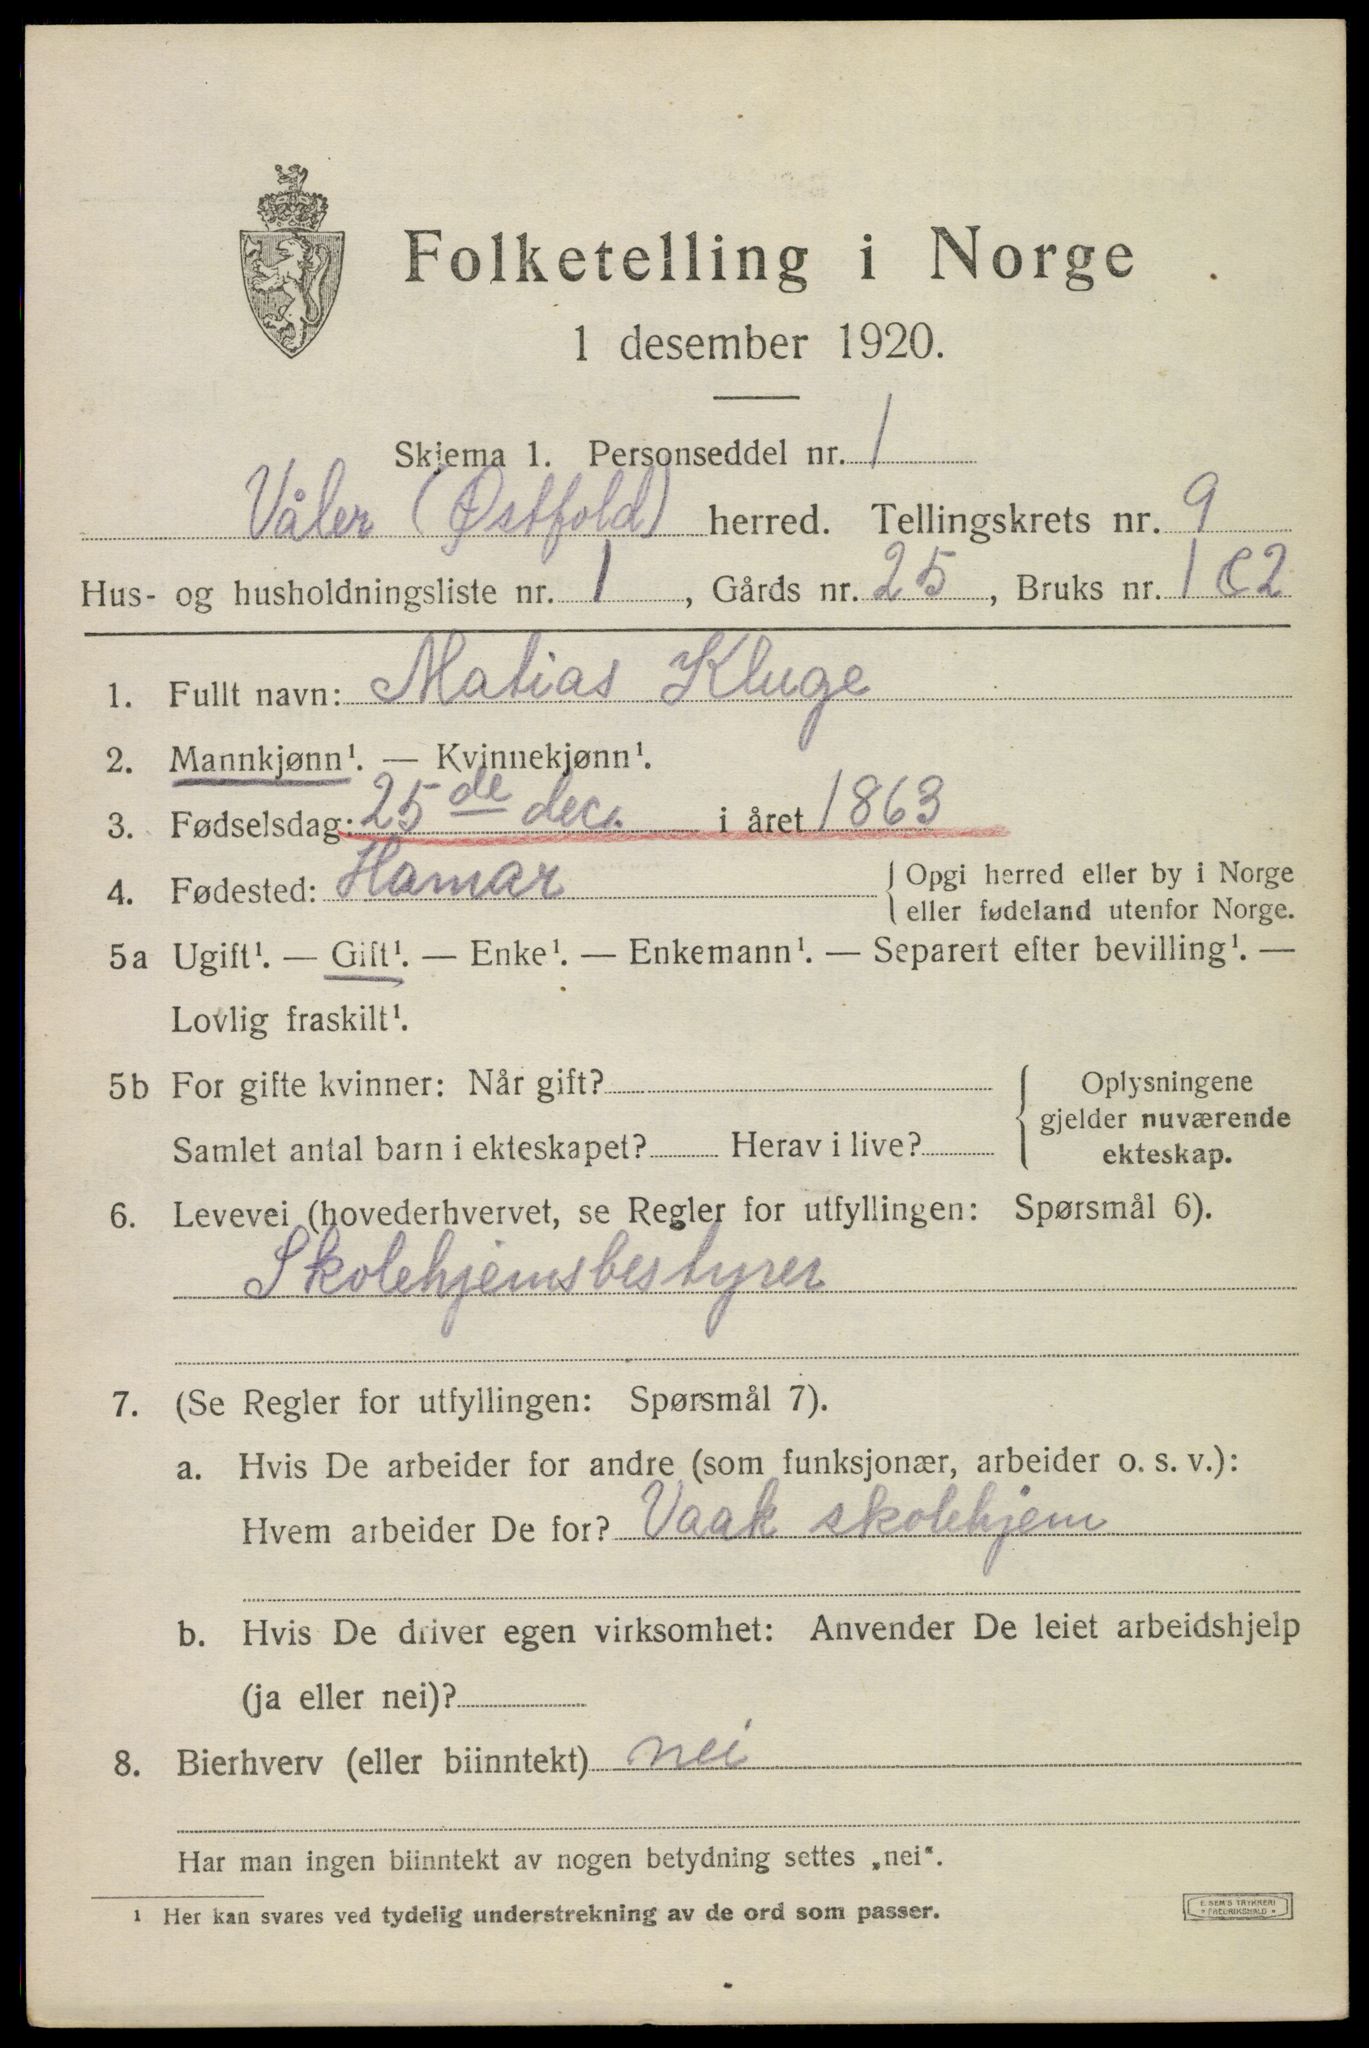 Folketelling i Norge
1 desember 1920.
Skjema 1. Personseddel nr. 1
Våler (Østfold) herred. Tellingskrets nr. 9
Hus- og husholdningsliste nr. 1, Gårds nr. 25, Bruks nr. 1 & 2
1. Fullt navn: Matias Kluge
2. Mannkjønn¹. — Kvinnekjønn¹.
3. Fødselsdag: 25de dec. i året 1863
4. Fødested: Hamar
Opgi herred eller by i Norge
eller fødeland utenfor Norge.
5a Ugift¹. — Gift¹. — Enke¹. — Enkemann¹. — Separert efter bevilling¹. —
Lovlig fraskilt¹.
5b For gifte kvinner: Når gift?
Samlet antal barn i ekteskapet? Herav i live?
Oplysningene
gjelder nuværende
ekteskap.
6. Levevei (hovederhvervet, se Regler for utfyllingen: Spørsmål 6).
Skolehjemsbestyrer
7. (Se Regler for utfyllingen: Spørsmål 7).
a. Hvis De arbeider for andre (som funksjonær, arbeider o. s. v.):
Hvem arbeider De for? Vaak skolehjem
b. Hvis De driver egen virksomhet: Anvender De leiet arbeidshjelp
(ja eller nei)?
8. Bierhverv (eller biinntekt) nei
Har man ingen biinntekt av nogen betydning settes „nei“.
¹ Her kan svares ved tydelig understrekning av de ord som passer.
E. SEM'S TRYKKERI
* FREDRIKSHALD *